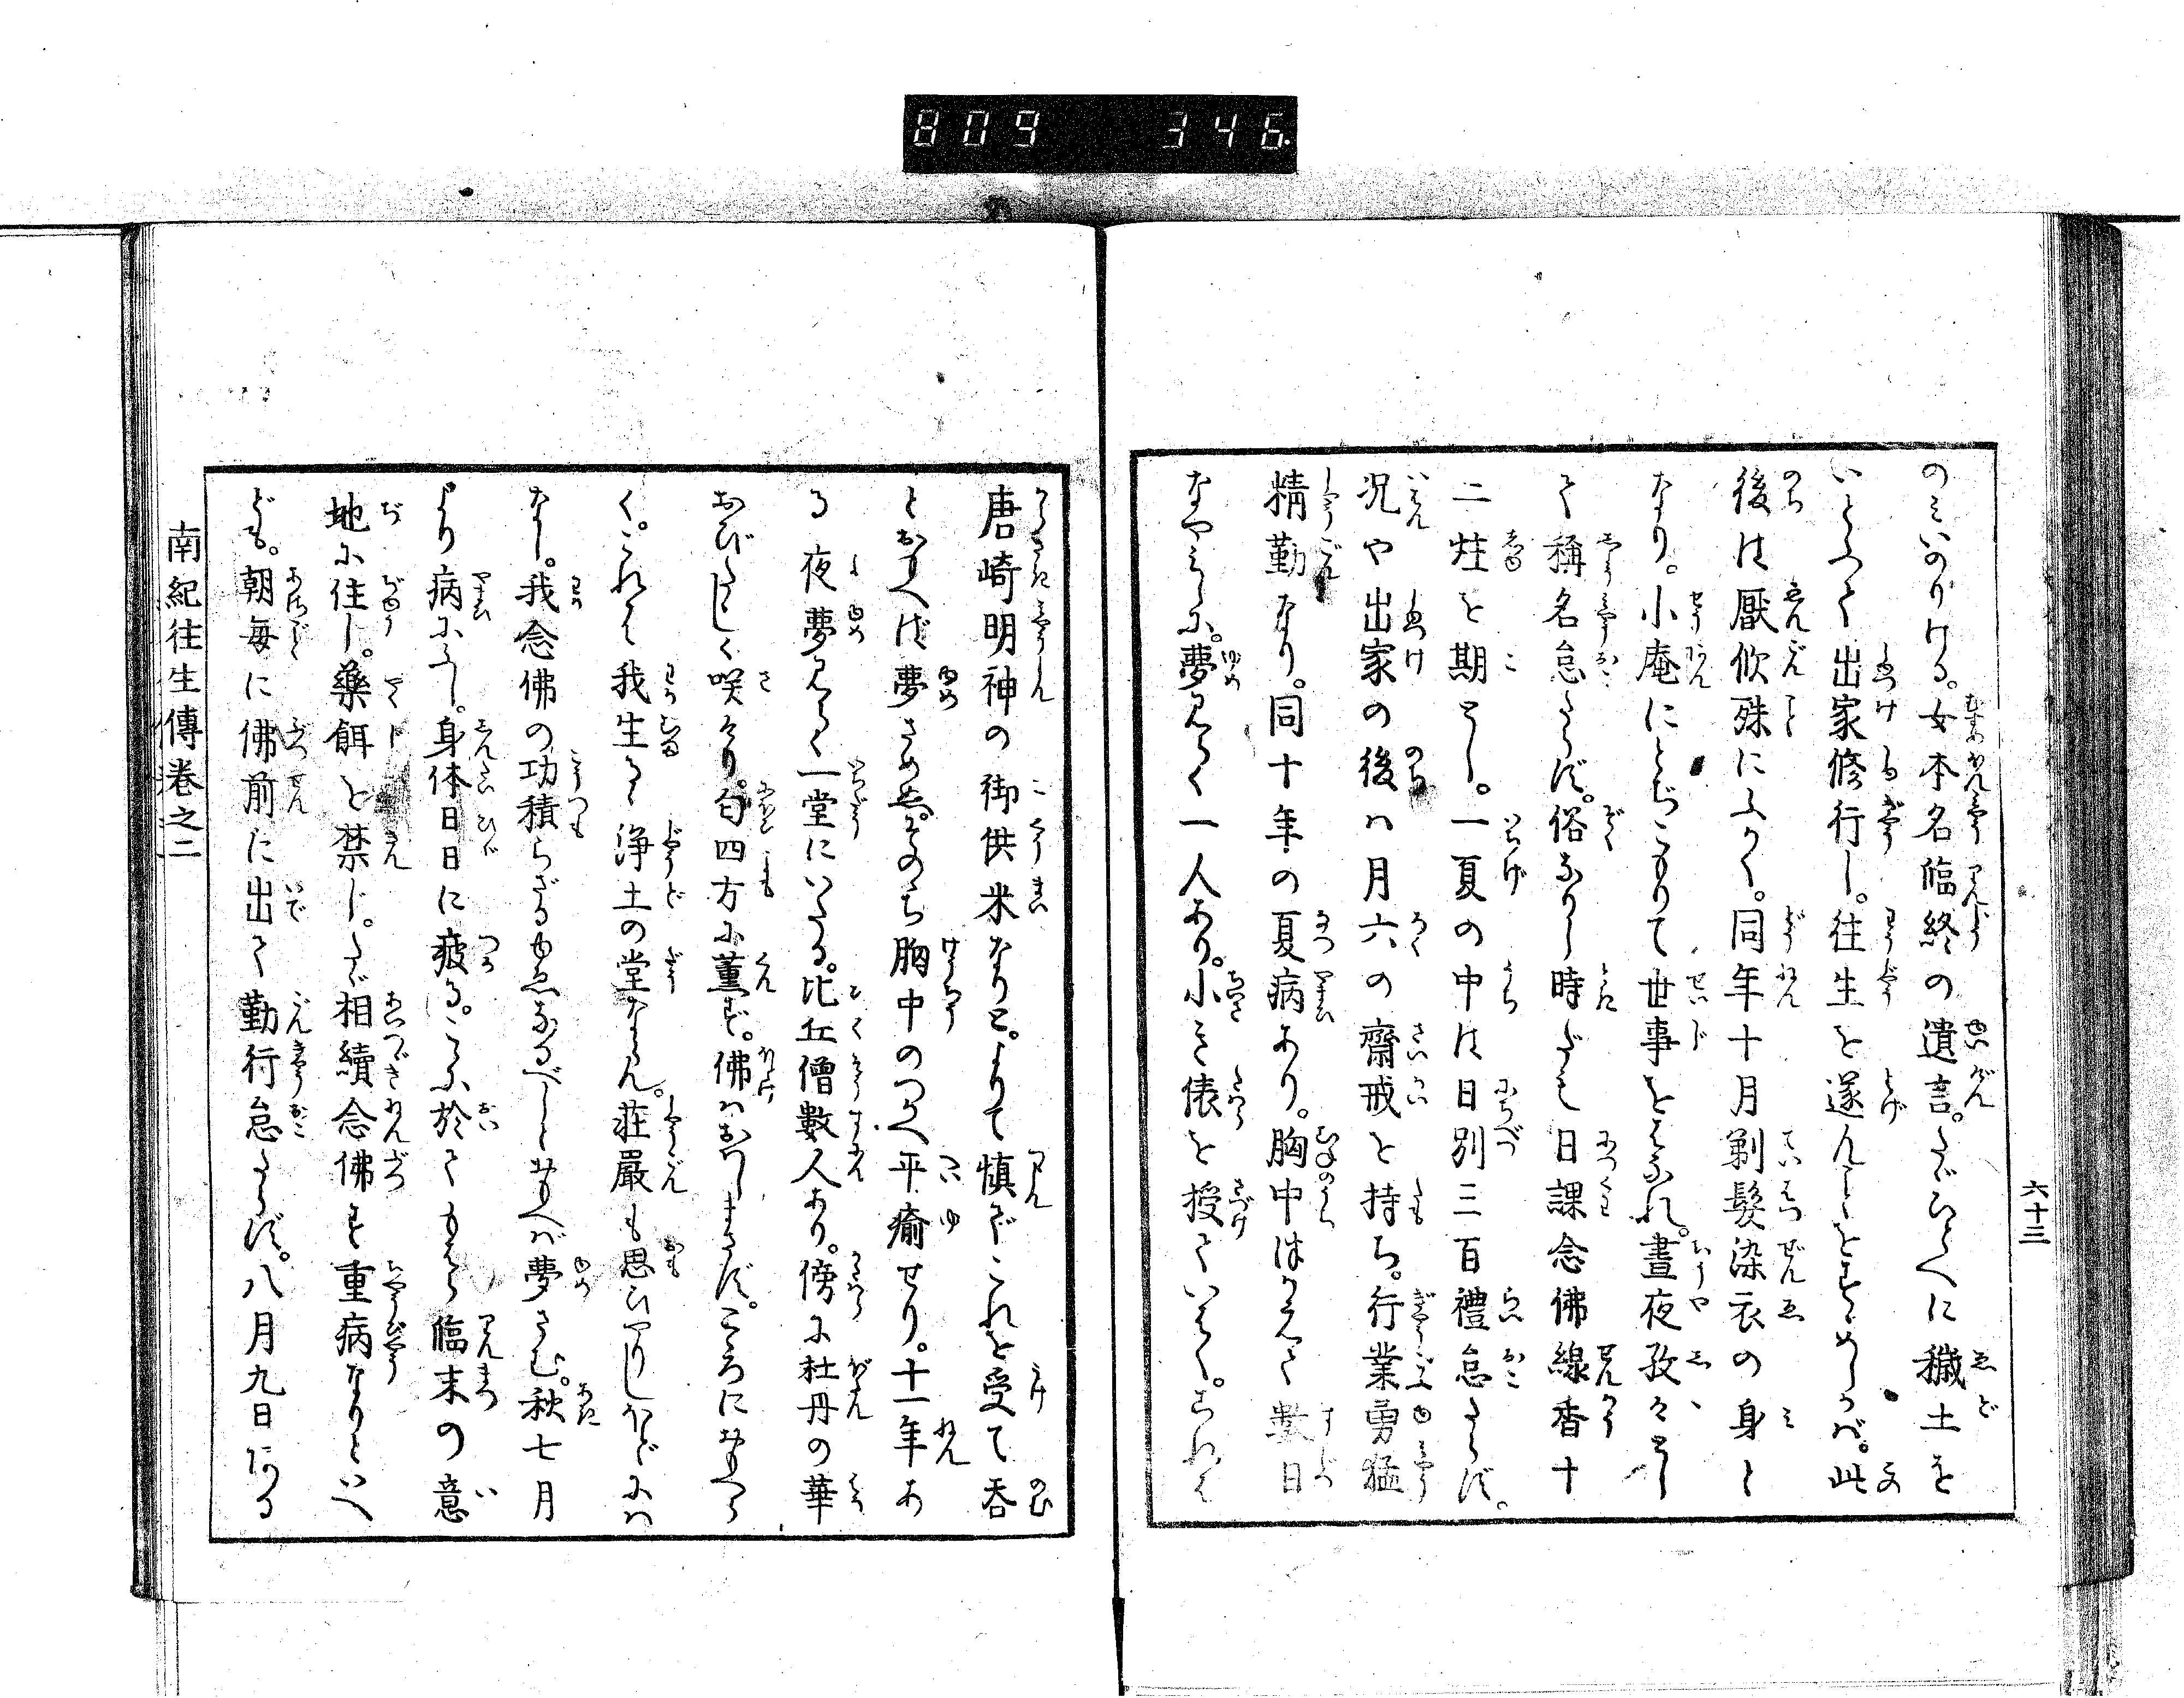 809 346.
六十三
のミいのりける。女本名臨終の遺言。たゞひとへに穢土を
いとふて出家修行し。往生を遂んことをすゝめしかば。此
後は厭欣殊にふかく。同年十月剃髮染衣の身と
なり。小庵にとぢこもりて世事をはなれ。晝夜孜々とし
て稱名怠らず。俗なりし時だも日課念佛線香十
二炷を期とし。一夏の中は日別三百禮怠らず。
况や出家の後ハ月六の齋戒を持ち。行業勇猛
精勤なり。同十年の夏病あり。胸中はりさけ數日
なやミしに。夢見らく一人あり。小き俵を授ていはく。これは
唐崎明神の御供米なりと。よりて愼でこれを受て呑
とおもへば夢さめぬ。そのゝち胸中のつかへ平癒せり。十一年あ
る夜夢見らく一堂にいたる。比丘僧數人あり。傍に牡丹の華
おびたゝしく咲り。匂四方に薰ず。佛ハおはしまさず。こゝろにおもへら
く。これは我生るゝ浄土の堂ならん。莊嚴も思ひやりしほどにハ
なし。我念佛の功積らざるゆゑなるべしとおもへバ夢さむ。秋七月
より病にふし。身体日日に疲る。こゝに於てもはら臨末の意
地に住し。藥餌を禁じ。たゞ相續念佛す重病なりといへ
ども。朝每に佛前に出て勤行怠らず。八月九日にいたる
南紀往生傳卷之二